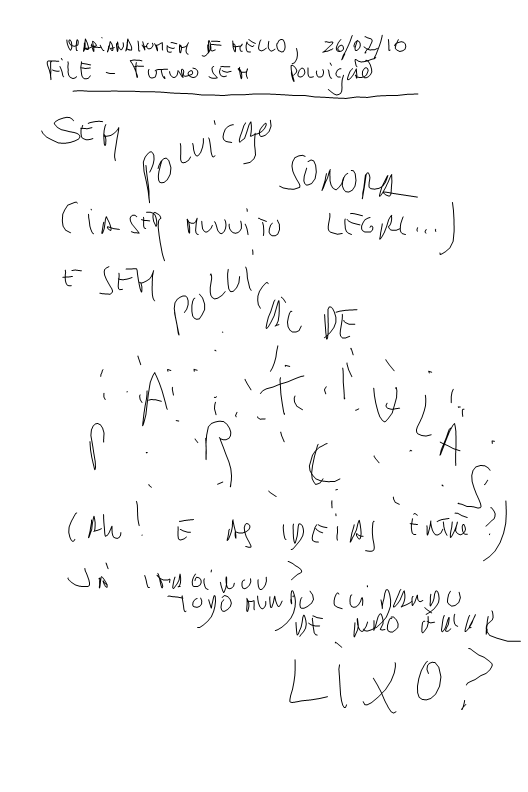 MARIANA DE MELLO, 26/07/10
FILE - FUTURO SEM POLUIÇÃO
SEM POLUIÇÃO SONORA
(IA SER MUUUITO LEGAL...)
E SEM POLUIÇÃO DE
PARTICULAS
(AH! E AS IDEIAS ENTRE?)
JÁ IMAGINOU?
TODO MUNDO CUIDANDO
DE NÃO
LIXO?